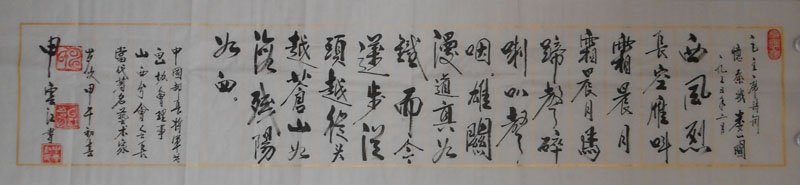 毛主席诗词
憶秦娥娄山關
一九三五年二月
西风烈
長空雁叫
霜晨月
霜晨月馬
蹄聲碎
喇叭聲
咽雄關
漫道真如
鐵而今
邁步從
頭越從头
越蒼山如
海殘陽
如血。
中國部長將軍书
画院理事
山西分會会長
當代著名藝术家
歲次甲午初春
申雲江書